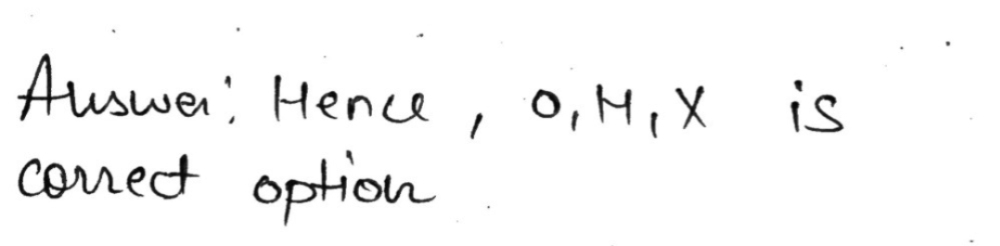 Answer: Hence, O, H, X is
correct option